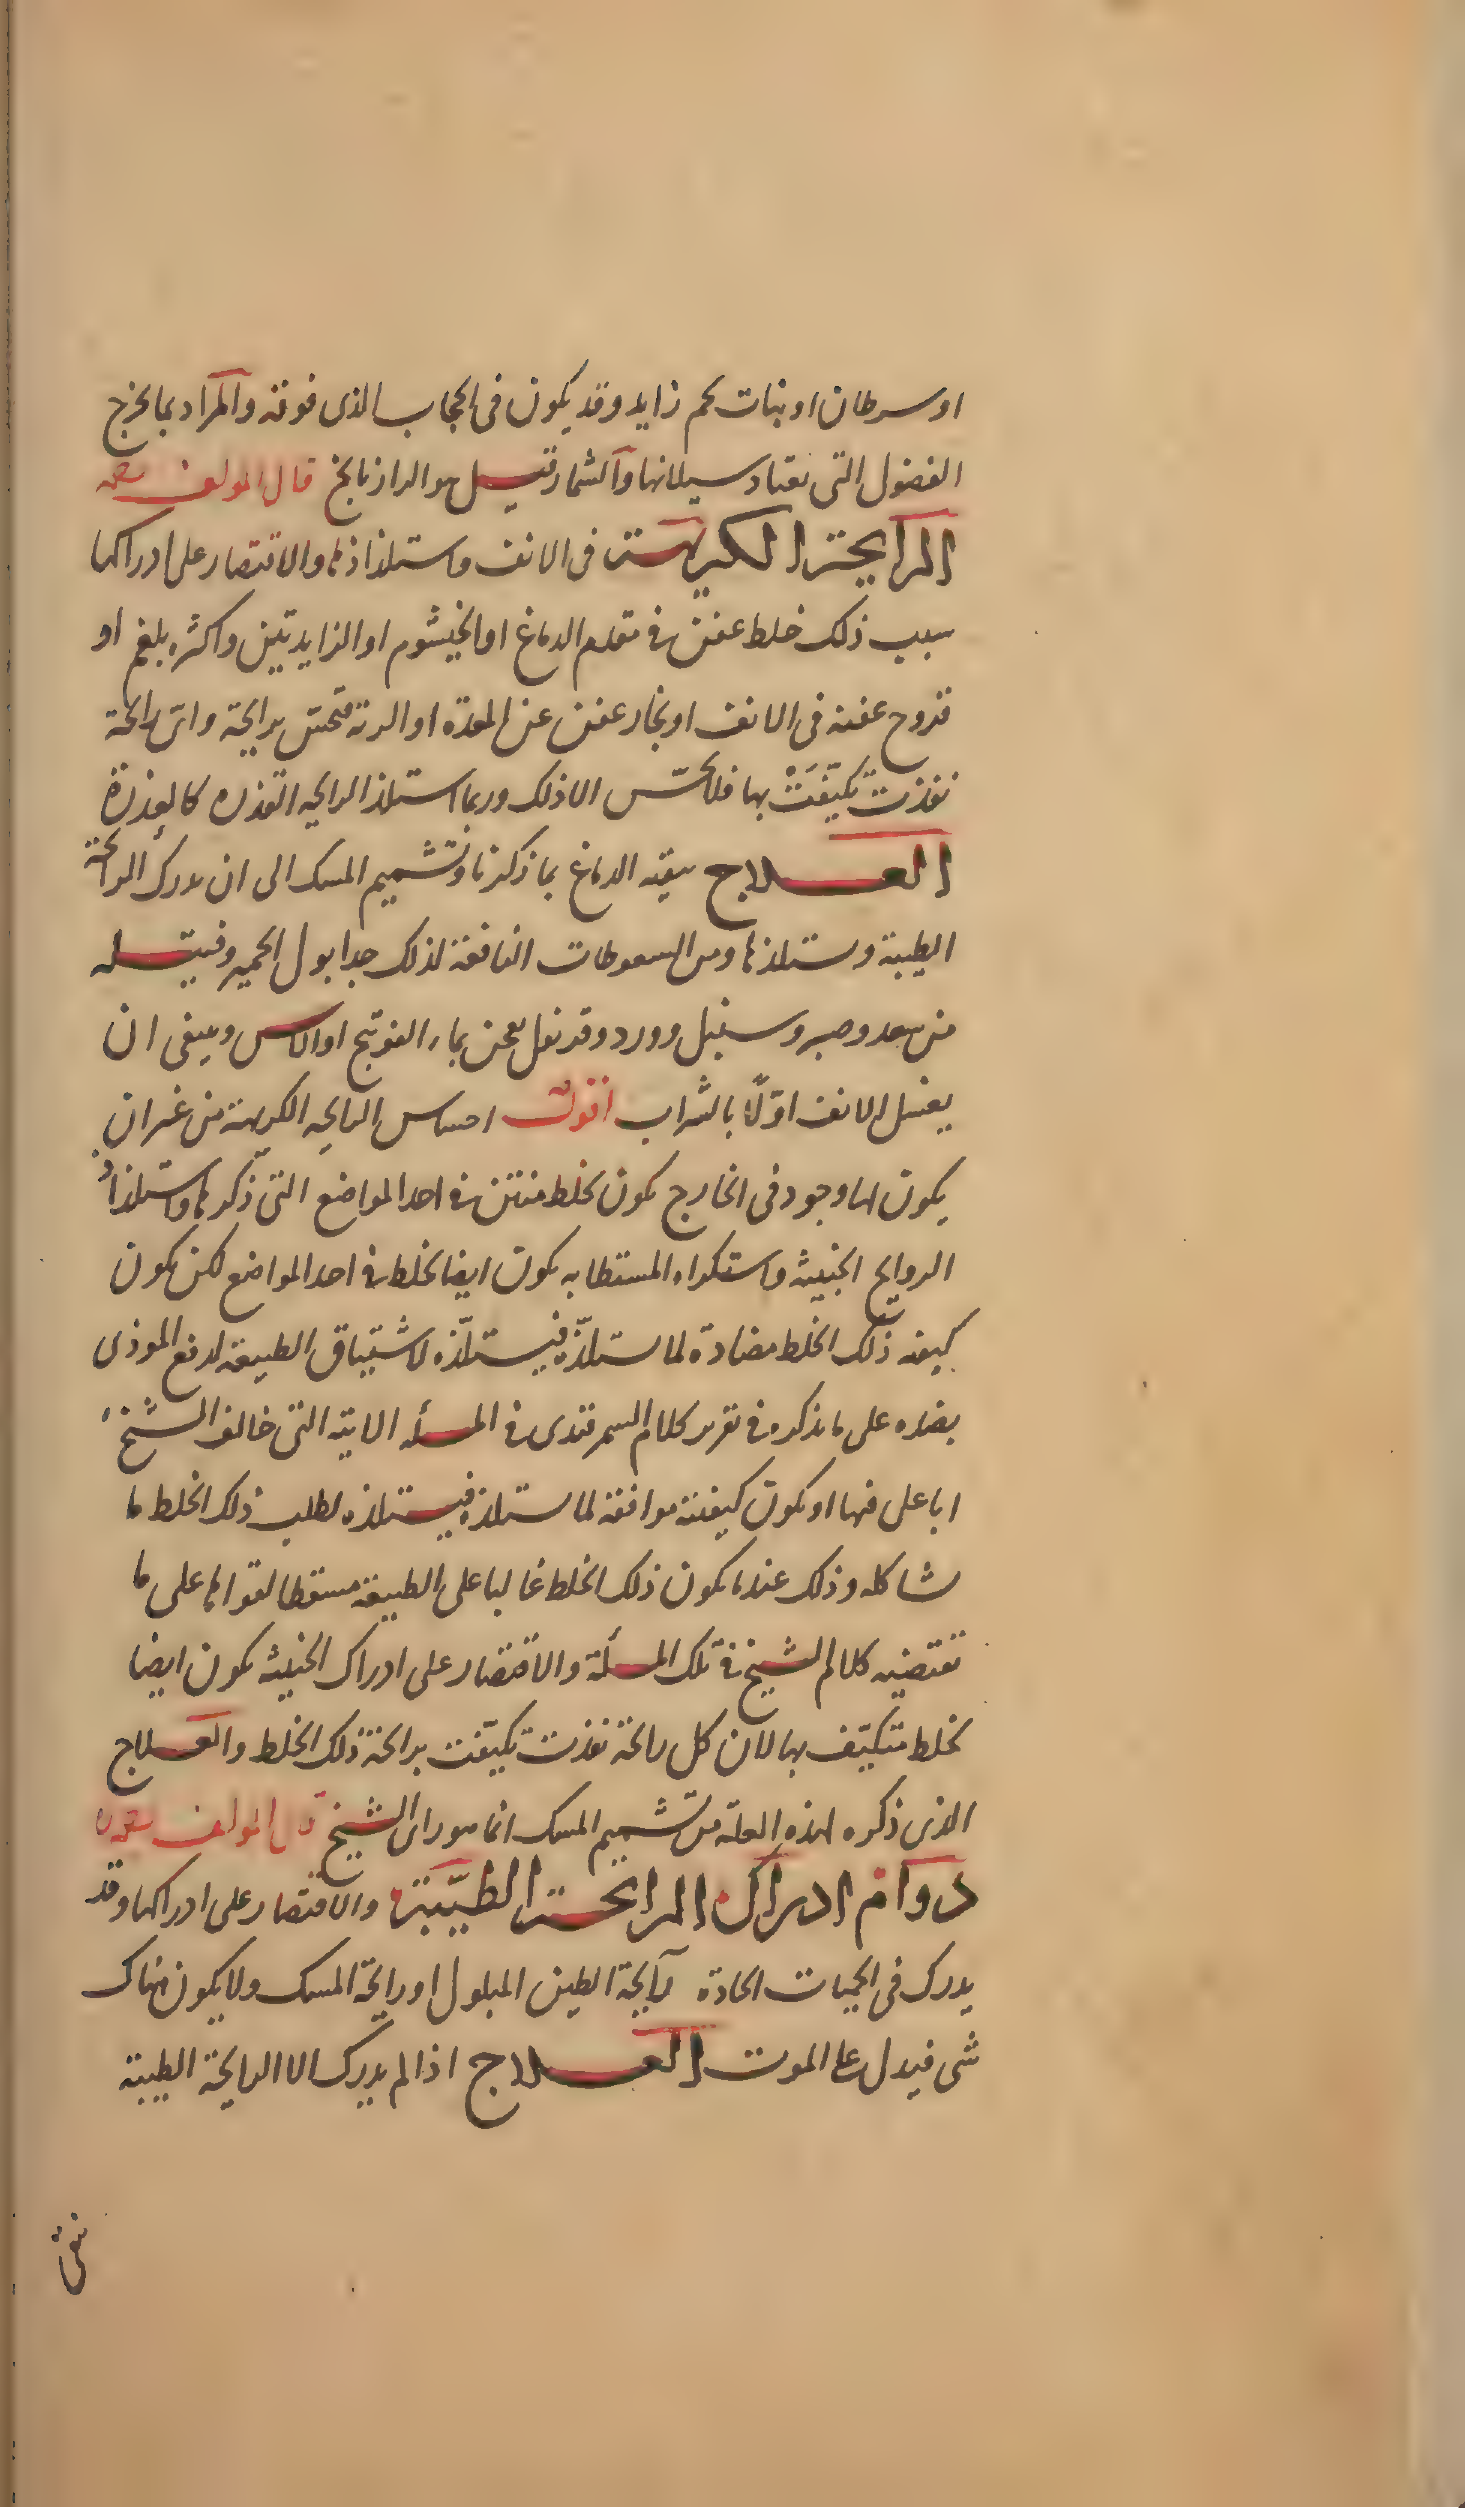 او سرطان او نبات لحم زايد وقد يكون فى الحجاب الذى فوقه والمراد بما يخرج
الفضول التى تعتاد سيلانها والشمار قيل هو الرازيانج قال المولف رحمه
الرايحة الكريهة فى الانف واستلذاذها والاقتصار على ادراكها
سبب ذلك خلط عفن فى مقدم الدماغ او الخيشوم او الزايدتين واكثره بلغم او
قروح عفنه فى الانف او بخار عفن عن المعدة او الرئة فتحس برايحة واى رايحة
نفذت تكيَّفَتْ بها فلا تحس الا ذلك وربما استلذ الرايحه القذره كالعذرة
العلاج تنقيه الدماغ بما ذكرنا وتشميم المسك الى ان يدرك الرائحة
الطيبة ويستلذها ومن السعوطات النافعة لذلك جدا بول الحمير وفتيله
من سعد وصبر وسنبل وورد وقرنفل يعجن بماء الفوتنج او الاس وينبغى ان
يغسل الانف اوّلاً بالشراب اقول احساس الرايحه الكريهة من غير ان
يكون لها وجود فى الخارج يكون لخلط منتن فى احد المواضع التى ذكرها واستلذاذ
الروايح الخبيثه واستكراه المستطابه يكون ايضا لخلط فى احد المواضع لكن يكون
كيفيه ذلك الخلط مضادة لما يستلذّه فيستلذّه لاشتياق الطبيعة لدفع الموذى
بضده على ما نذكره فى تقرير كلام السمرقندى فى المسأله الاتيه التى خالف الشيخ
ابا على فيها او يكون كيفيته موافقه لما يستلذه فيستلذه لطلب ذلك الخلط ما
يشاكله وذلك عندما يكون ذلك الخلط غالبا على الطبيعة مسقطا لقواها على ما
تقتضيه كلام الشيخ فى تلك المسألة والاقتصار على ادراك الخبيثه يكون ايضا
لخلط متكيّف بها لان كل رائحة نفذت تكيّفت برائحة ذلك الخلط والعلاج
الذى ذكره لهذه العلة من تشميم المسك انما هو راى الشيخ قال المولف رحمه
دوام ادراك الرائحة الطيّبة والاقتصار على ادراكها وقد
يدرك فى الحميات الحادة رايحة الطين المبلول او رايحة المسك ولا يكون هناك
شى فيدل على الموت العلاج اذا لم يدرك الا الرايحة الطيبة